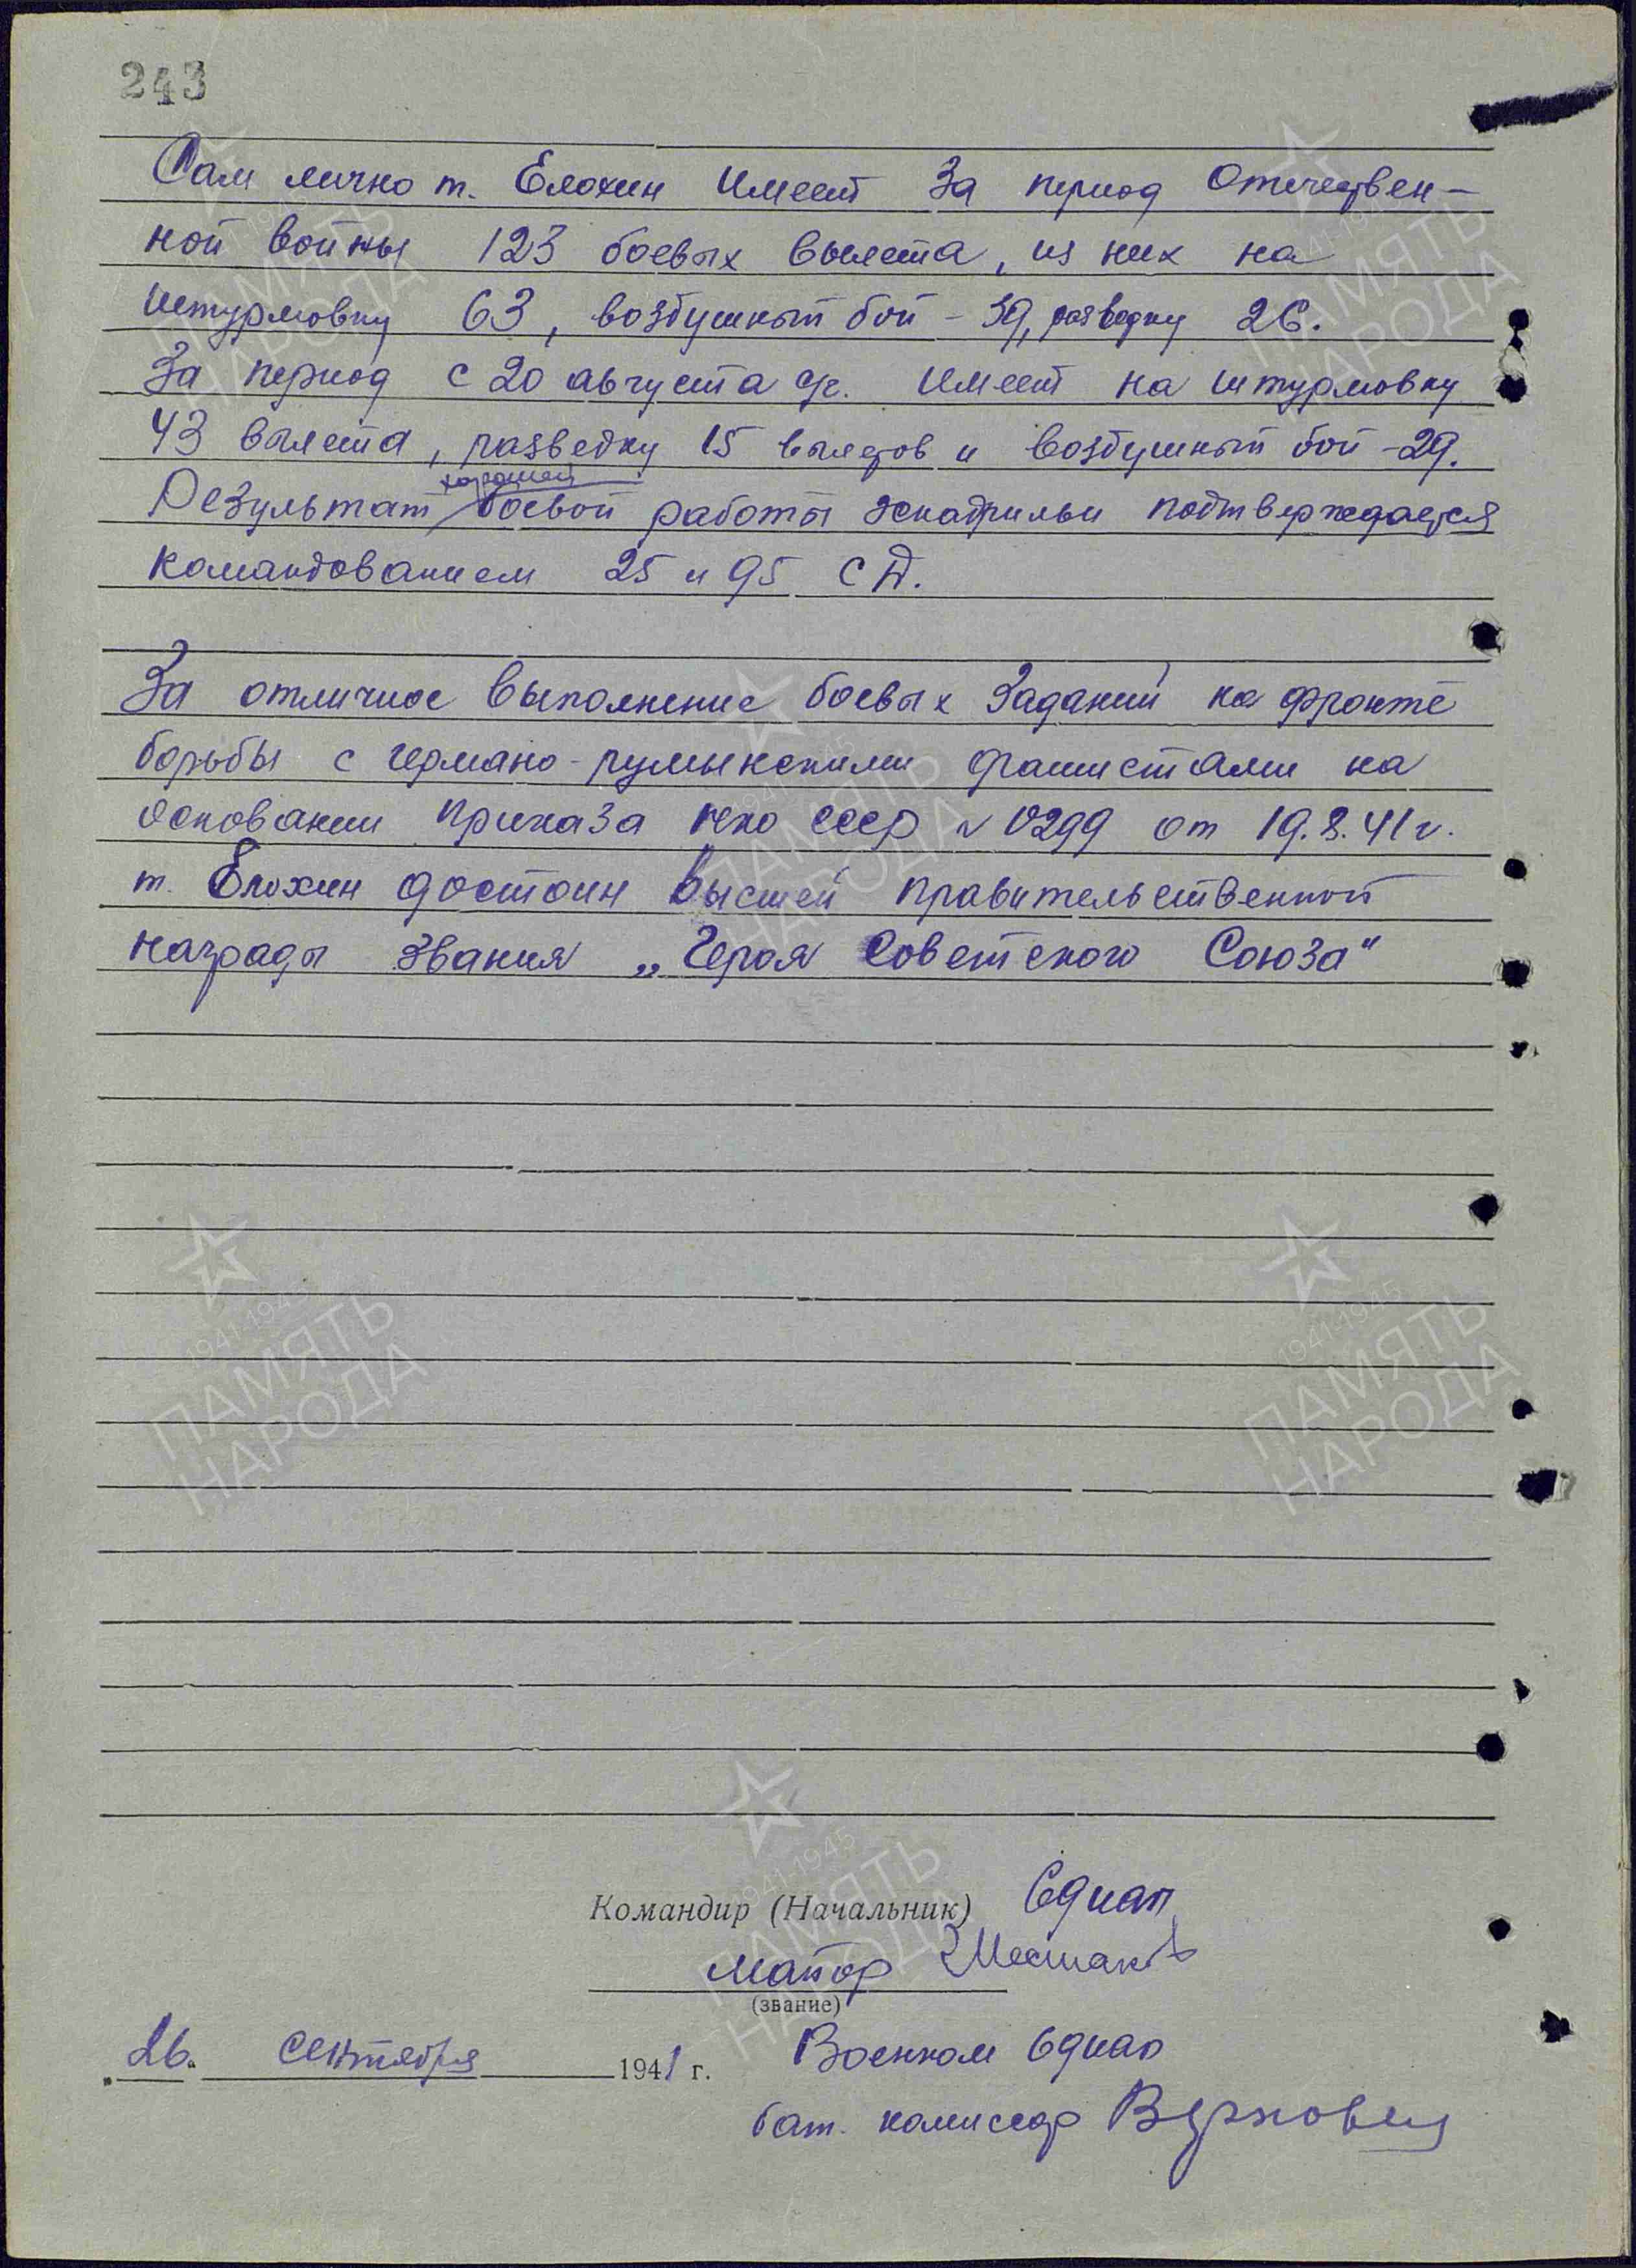 243
Сам лично т. Елохин имеет за период Отечествен-
ной войны 123 боевых вылета, из них на
штурмовку 63, воздушный бой - 39, разведку 26.
За период с 20 августа с/г. имеет на штурмовку
43 вылета, разведку 15 вылетов и воздушный бой - 29.
хорошей
Результат боевой работы эскадрильи подтверждается
командованием 25 и 95 СД.
За отличное выполнение боевых заданий на фронте
борьбы с германо-румынскими фашистами на
основании приказа НКО СССР № 0299 от 19.8.41 г.
т. Елохин достоин высшей правительственной
награды звания „Героя Советского Союза"
Командир (Начальник) 69 иап
майор
(звание)
26. сентября 1941 г. Военком 69 иап
бат. комиссар
1941-1945
ПАМЯТЬ
НАРОДА